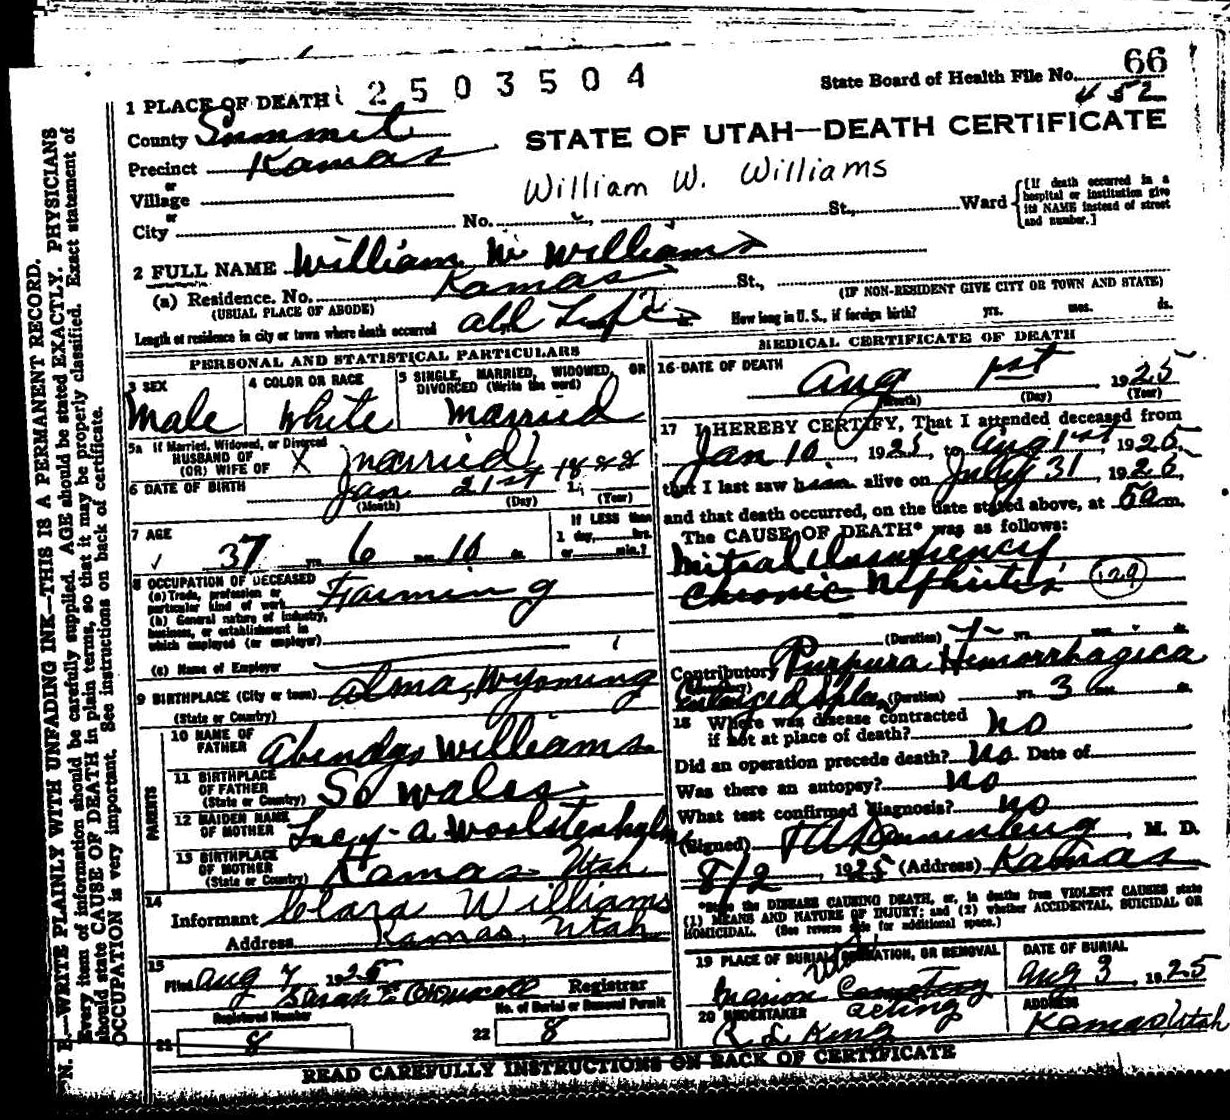 66
State Board of Health File No.
452
2503504
1 PLACE OF DEATH
County Summit
STATE OF UTAH—DEATH CERTIFICATE
Precinct Kamas
or
Village
William W. Williams
or
City No. St., Ward
[If death occurred in a hospital or institution give its NAME instead of street and number.]
2 FULL NAME William W Williams
(a) Residence. No. Kamas St.,
(USUAL PLACE OF ABODE)
(IF NON-RESIDENT GIVE CITY OR TOWN AND STATE)
Length of residence in city or town where death occurred all Life
How long in U. S., if foreign birth? yrs. mos. ds.
PERSONAL AND STATISTICAL PARTICULARS
3 SEX
Male
4 COLOR OR RACE
White
5 SINGLE, MARRIED, WIDOWED, OR DIVORCED (Write the word)
Married
5a If Married, Widowed, or Divorced
HUSBAND OF
(OR) WIFE OF X Married
6 DATE OF BIRTH Jan 21st 1888
(Month) (Day) (Year)
7 AGE
37 yrs. 6 mos. 10 ds.
If LESS than
1 day, hrs.
or min.?
8 OCCUPATION OF DECEASED
(a) Trade, profession or
particular kind of work
Farming
(b) General nature of industry,
business, or establishment in
which employed (or employer)
(c) Name of Employer
9 BIRTHPLACE (City or town) Alma, Wyoming
(State or Country)
PARENTS
10 NAME OF
FATHER Abendgo Williams
11 BIRTHPLACE
OF FATHER
(State or Country) So Wales
12 MAIDEN NAME
OF MOTHER Lucy A. Woolstenhulm
13 BIRTHPLACE
OF MOTHER
(State or Country) Kamas Utah
14
Informant Clara Williams
Address Kamas, Utah
15
Filed Aug 7 1925
Sarah E Registrar
Registered Number
No. of Burial or Removal Permit
21 8
22 8
MEDICAL CERTIFICATE OF DEATH
16 DATE OF DEATH
Aug 1st 1925
(Month) (Day) (Year)
17 I HEREBY CERTIFY, That I attended deceased from
Jan 10, 1925, to Aug 1st, 1925,
that I last saw him alive on July 31, 1925,
and that death occurred, on the date stated above, at 5 a m.
The CAUSE OF DEATH* was as follows:
Mitral Insuffiency
Chronic Nephritis (129)
(Duration) 7 yrs. mos. ds.
Contributory Purpura Hemorrhagica
(Secondary)
enlarged Splen (Duration) yrs. 3 mos. ds.
18 Where was disease contracted
if not at place of death? no
Did an operation precede death? No. Date of
Was there an autopsy? no
What test confirmed diagnosis? no
(Signed) , M. D.
8/2, 1925 (Address) Kamas
*State the DISEASE CAUSING DEATH, or, in deaths from VIOLENT CAUSES state
(1) MEANS AND NATURE OF INJURY; and (2) whether ACCIDENTAL, SUICIDAL OR
HOMICIDAL. (See reverse side for additional space.)
19 PLACE OF BURIAL, CREMATION, OR REMOVAL
Marion Cemetery
Utah
DATE OF BURIAL
Aug 3, 1925
20 UNDERTAKER acting
R L King
ADDRESS
Kamas Utah
READ CAREFULLY INSTRUCTIONS ON BACK OF CERTIFICATE
N. B.—WRITE PLAINLY WITH UNFADING INK—THIS IS A PERMANENT RECORD.
Every item of information should be carefully supplied. AGE should be stated EXACTLY. PHYSICIANS
should state CAUSE OF DEATH in plain terms, so that it may be properly classified. Exact statement of
OCCUPATION is very important. See instructions on back of certificate.